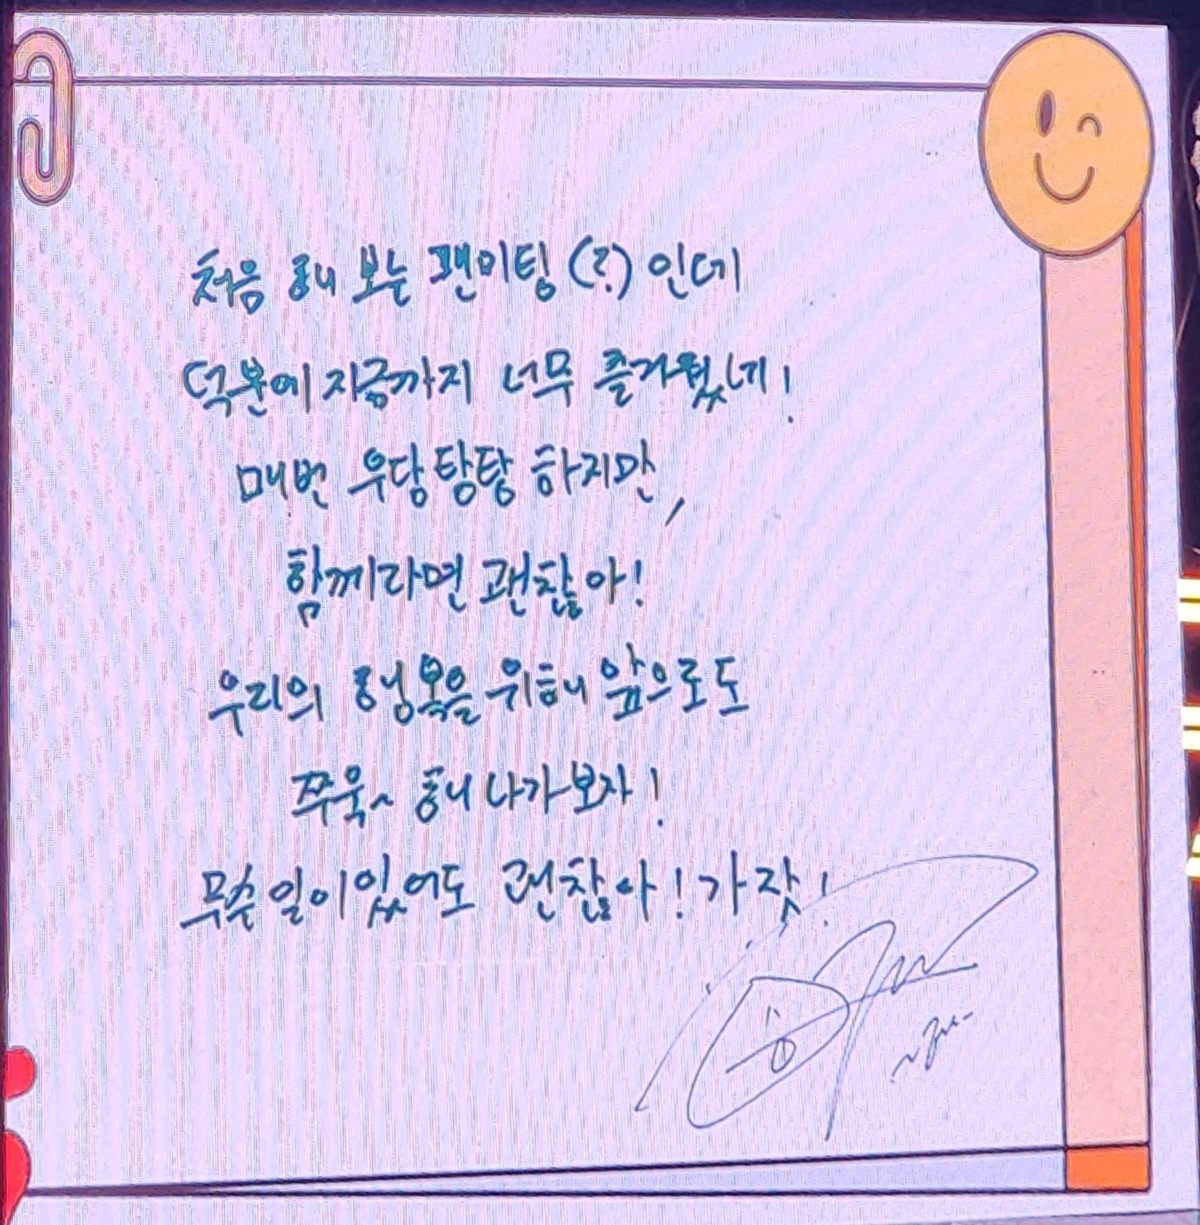 처음 해 보는 팬미팅(?)인데
덕분에 지금까지 너무 즐거웠네!
매번 우당탕탕 하지만,
함께라면 괜찮아!
우리의 행복을 위해 앞으로도
쭈욱~ 해 나가보자!
무슨 일이 있어도 괜찮아! 가잣!